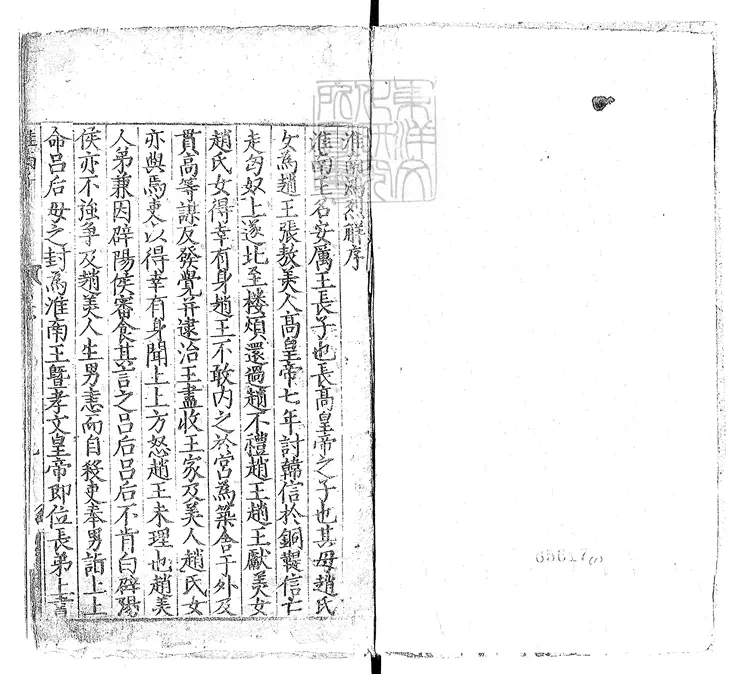 淮南鴻烈解序
淮南王名安厲王長子也長高皇帝之子也其母趙氏
女為趙王張敖美人高皇帝七年討韓信於銅鞮信亡
走匈奴上遂北至楼煩還過趙不禮趙王趙王獻美女
趙氏女得幸有身趙王不敢内之於宫為築舎于外及
貫高等謀反發覺并逮治王盡收王家及美人趙氏女
亦與焉吏以得幸有身聞上上方怒趙王未理也趙美
人弟兼因辟陽侯審食其言之吕后吕后不肯白辟陽
侯亦不強争及趙美人生男恚而自殺吏奉男詣上上
命吕后母之封為淮南王暨孝文皇帝即位長弟上書
東洋文
化研究
所
65617(1)